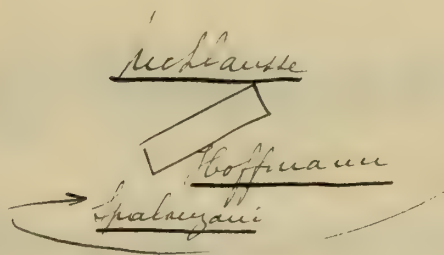 Nicklausse
Hoffmann
Spalanzani